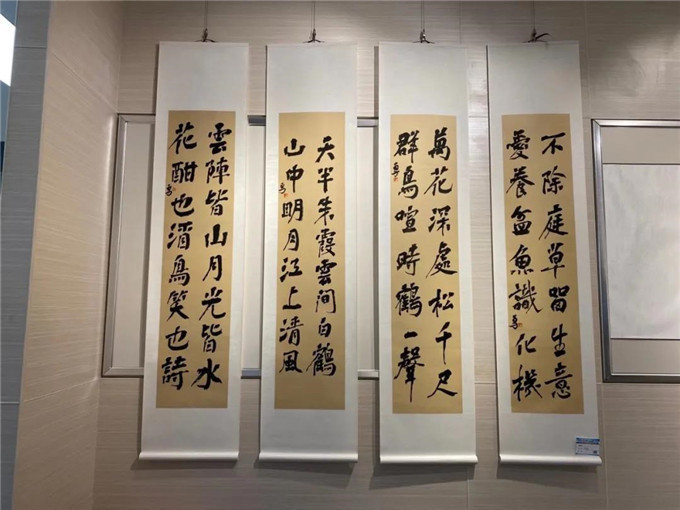 不除庭草留生意
愛養盆魚識化機
萬花深處松千尺
群鳥喧時鶴一聲
天半朱霞雲间白鶴
山中明月江上清風
雲陣皆山月光皆水
花酣也酒鳥笑也詩